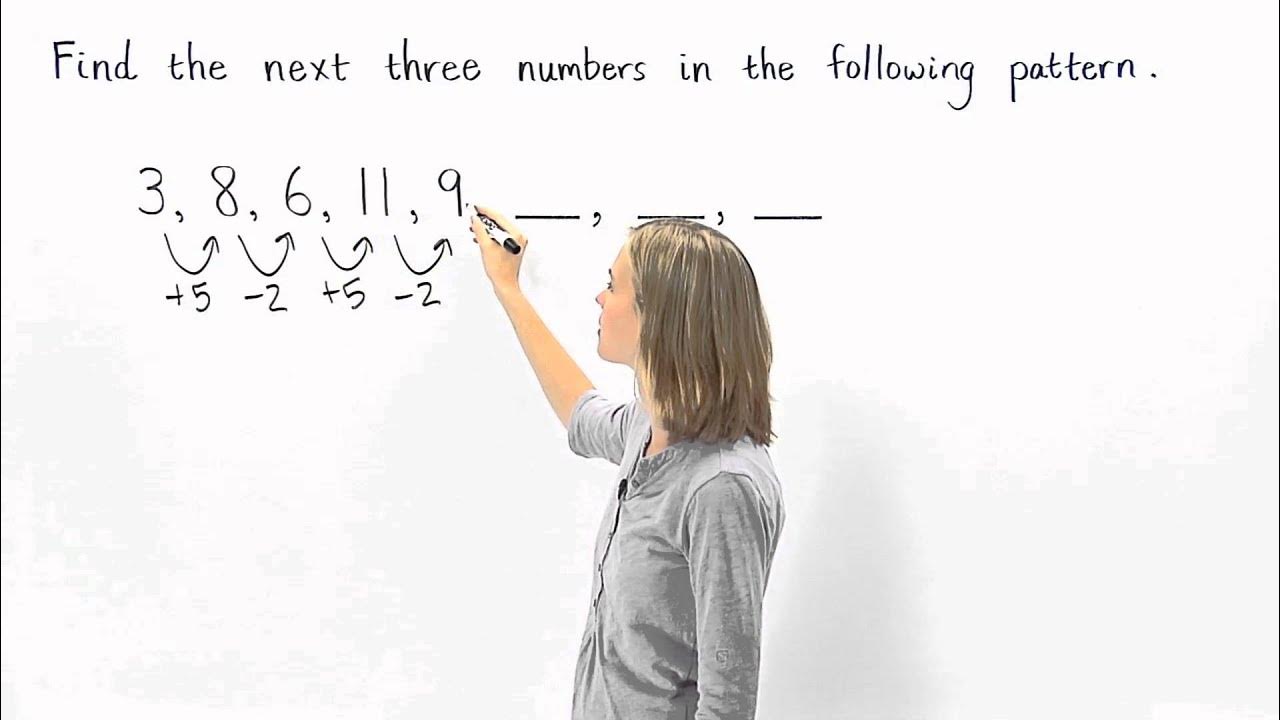 Find the next three numbers in the following pattern.
3, 8, 6, 11, 9, __, __, __
+5 -2 +5 -2